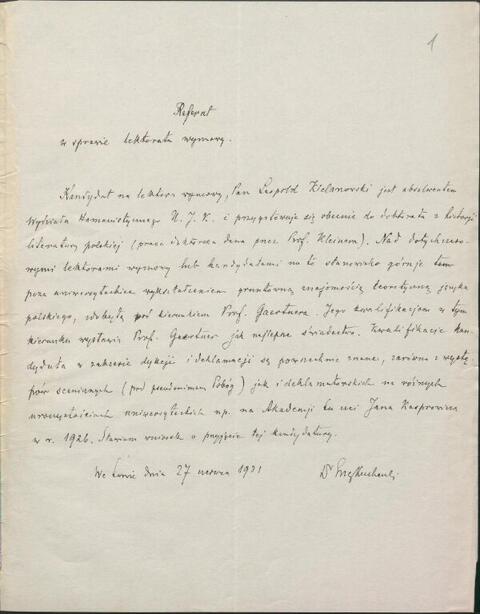 1
Referat
w sprawie lektoratu wymowy.
Kandydat na lektora wymowy, Pan Leopold Kielanowski jest absolwentem
Wydziału Humanistycznego U. J. K. i przygotowuje się obecnie do doktoratu z historji
literatury polskiej (praca doktorska dana przez Prof. Kleinera). Nad dotychczaso-
wymi lektorami wymowy lub kandydatami na to stanowisko góruje tem
poza uniwersyteckie wykształceniem gruntowną znajomością teoretyczną języka
polskiego, zdobytą pod kierunkiem Prof. Gaertnera. Jego kwalifikacjom w tym
kierunku wystawia Prof. Gaertner jak najlepsze świadectwo. Kwalifikacje kan-
dydata w zakresie dykcji i deklamacji są powszechnie znane, zarówno z wystę-
pów scenicznych (pod pseudonimem Pobóg) jak i deklamatorskich na różnych
uroczystościach uniwersyteckich np. na Akademji ku czci Jana Kasprowicza
w r. 1926. Stawiam wniosek o przyjęcie tej kandydatury.
We Lwowie dnia 27 czerwca 1931 Dr